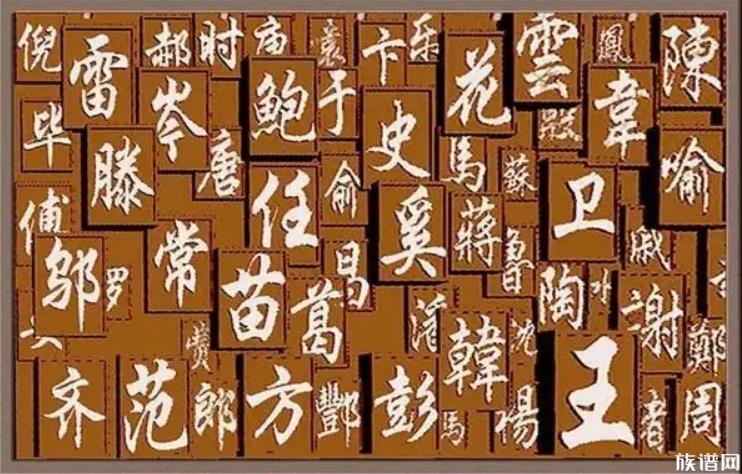 倪
雷
郝
时
庙
袁
卞
乐
花
雲
鳳
陳
毕
岑
鲍
于
史
殷
韋
滕
唐
任
俞
馬
蘇
喻
常
奚
蔣
卫
戚
邬
罗
苗
葛
昌
魯
陶
水
謝
韓
沈
鄭
齐
范
郎
方
酆
彭
馬
王
周
族谱网